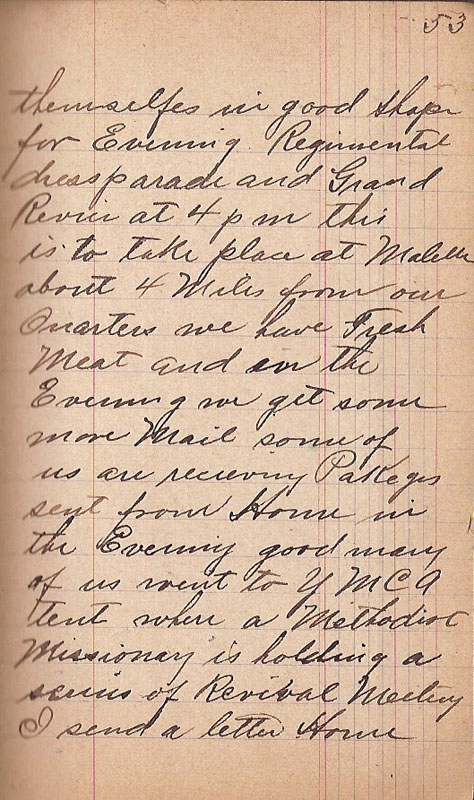 53
themselfes in good shape
for Evening Regimental
dressparade and Grand
Reviw at 4 p m this
is to take place at
about 4 Miles from our
Quarters we have Fresh
Meat and in the
Evening we get some
more Mail some of
us are recieving Pakeges
sent from Home in
the Evening good many
of us went to Y M C A
tent where a Methodist
Missionary is holding a
series of Revival Meeting
I send a letter Home